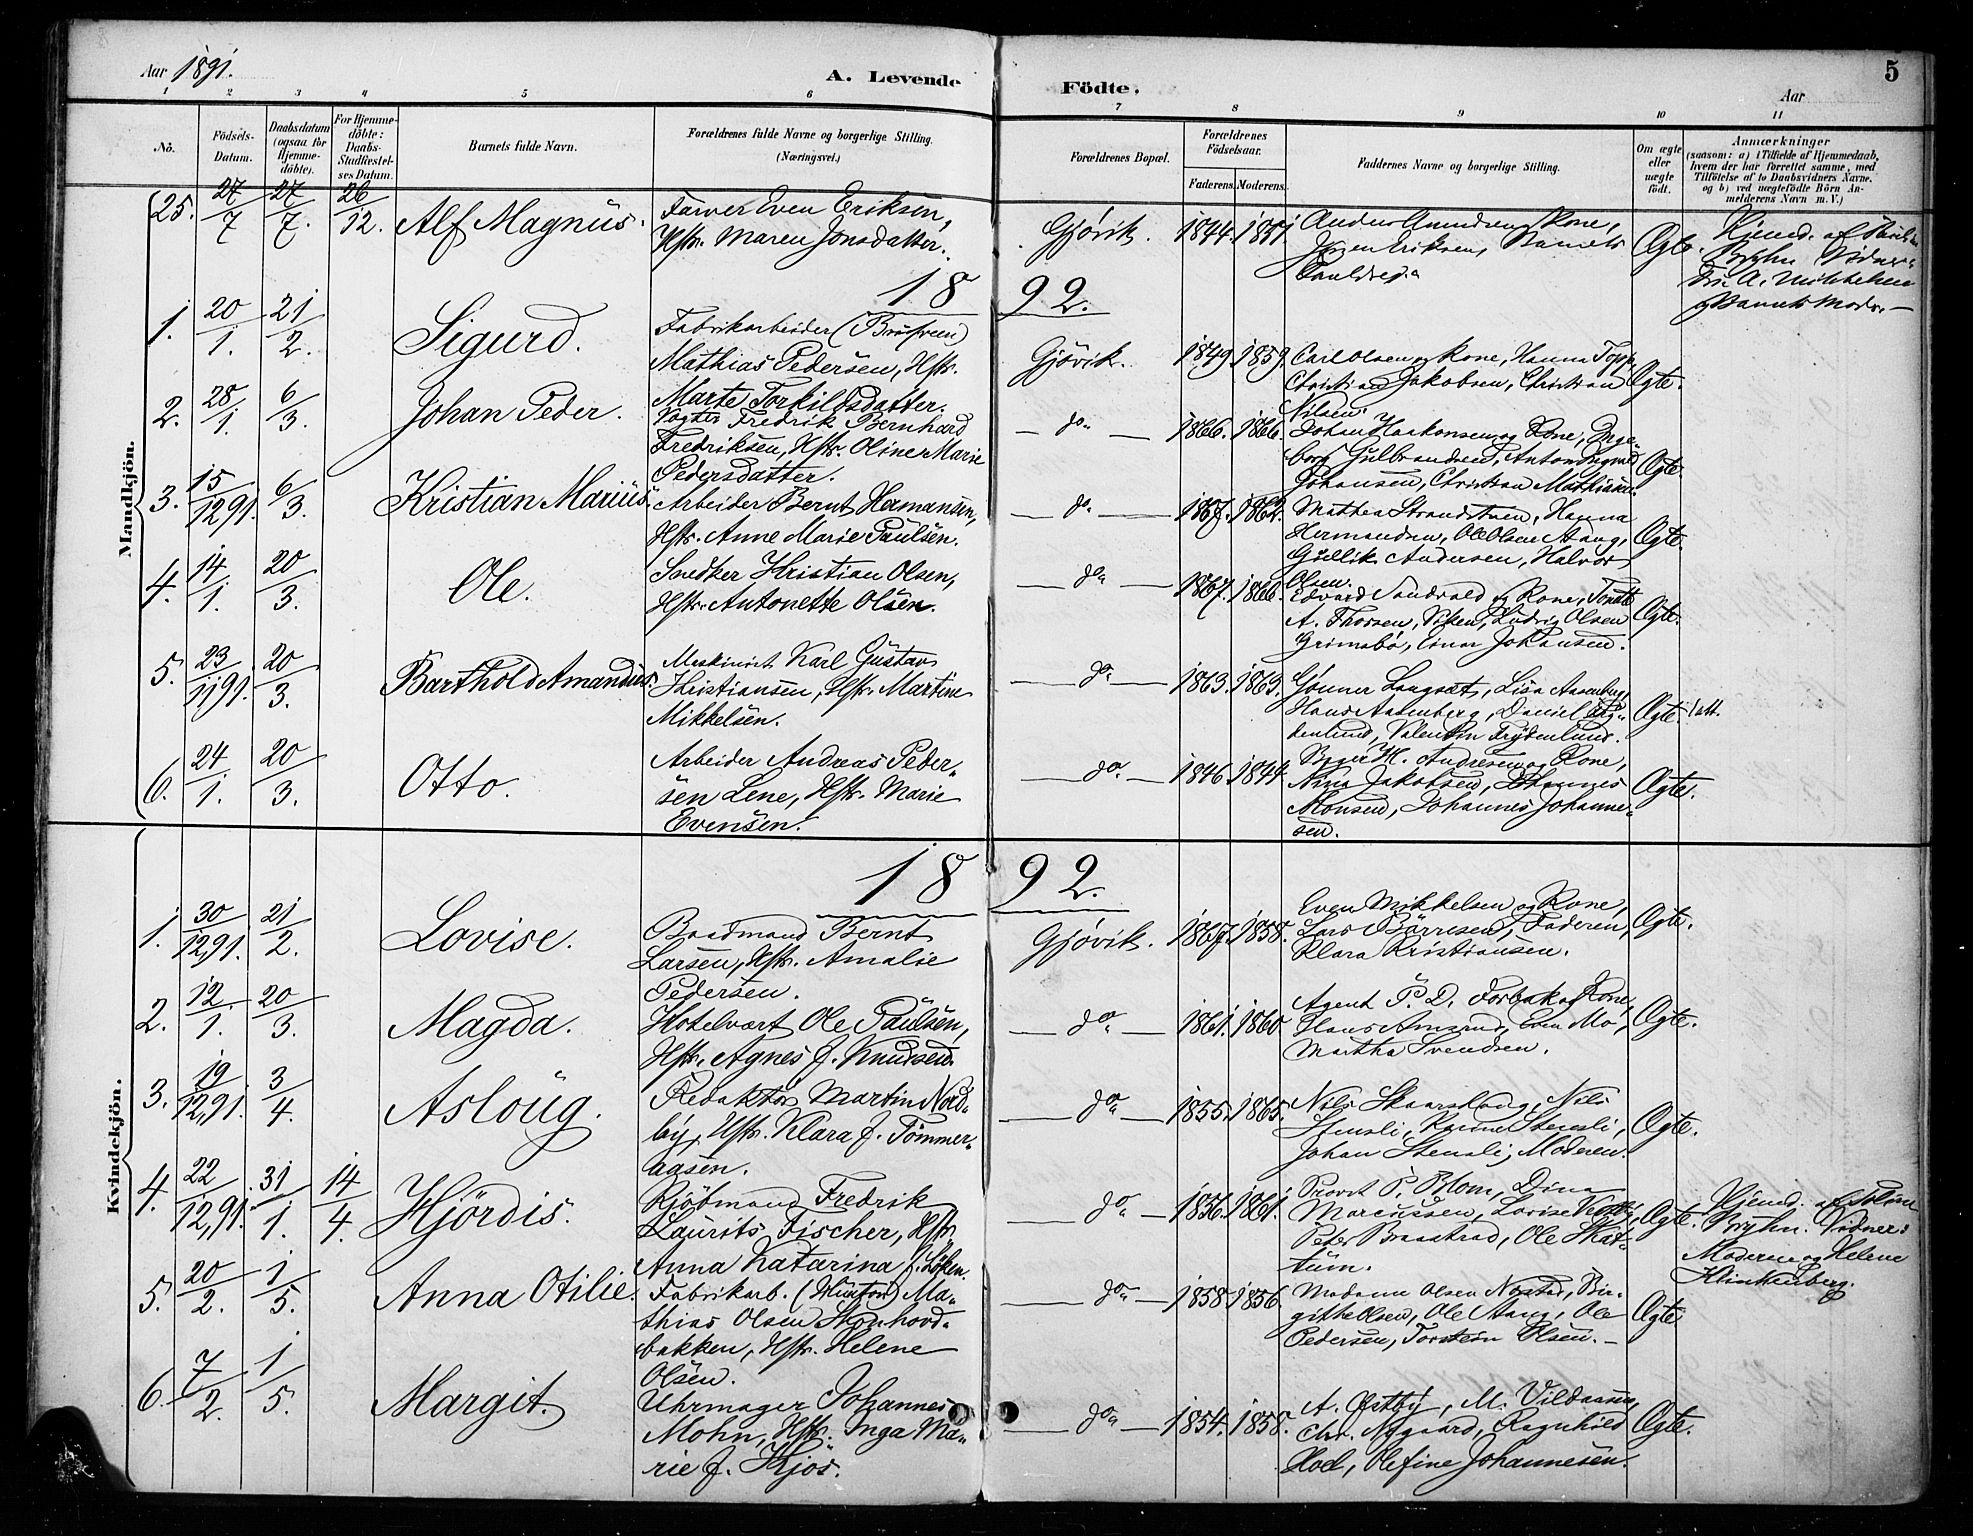 Aar 1891.
A. Levende Födte.
Aar
5
1 2 3 4 5 6 7 8 9 10 11
No.
Födsels-Datum.
Daabsdatum (ogsaa for Hjemme-döbte).
For Hjemme-döbte: Daabs-Stadfæstel-ses Datum.
Barnets fulde Navn.
Forældrenes fulde Navne og borgerlige Stilling. (Næringsvei.)
Forældrenes Bopæl.
Forældrenes Födselsaar.
Faderens. Moderens.
Faddernes Navne og borgerlige Stilling.
Om ægte eller uægte födt.
Anmærkninger
(saasom: a) i Tilfælde af Hjemmedaab,
hvem der har forrettet samme, med
Tilföielse af to Daabsvidners Navne.
og b) ved uægtefödte Börn An-
melderens Navn m. V.)
Mandkjön.
25. 27/7 27/7. 26/12. Alf Magnus.
Farver Even Eriksen,
Hstr. Maren Jonsdatter.
Gjövik. 1844. 1851
Eriksen, Barnets
Ægte.
Hjemd. af
Bryhn Vidner
A. Mikkelsen
og Barnets Moder. —
1892.
1. 20/1. 21/2. Sigurd.
Fabrikarbeider
Mathias Pedersen, Hstr.
Marte Torkildsdatter.
Gjövik. 1849. 1859.
Carl Olsen og Kone, Hanna Topp,
Christian Jakobsen, Christian
Nilsen.
Ægte.
2. 28/1. 6/3. Johan Peder.
Vogter Fredrik Bernhard
Fredriksen, Hstr. Oline Marie
Pedersdatter.
— do — 1866. 1866.
Johan Haakonsen og Kone, Inge-
borg Gulbrandsen, Anton
Johansen, Christian Mathisen.
Ægte.
3. 15/12 91. 6/3. Kristian Marius.
Arbeider Bernt Hermansen,
Hstr. Anne Marie Paulsen.
— do — 1867. 1862.
Mathea Strandstuen, Hanna
Hermansen, Ole Olsen Aang,
Gullik Andersen, Halvor
Olsen.
Ægte.
4. 14/1. 20/3. Ole.
Snedker Kristian Olsen,
Hstr. Antonette Olsen.
— do — 1867. 1866.
Edvard Sandvold og Kone,
A. Thorsen, Viken, Ludvig Olsen
Grimsbö, Einar Johansen.
Ægte.
5. 23/11 91. 20/3. Barthold Amandus.
Maskinist Karl Gustav
Kristiansen, Hstr. Martine
Mikkelsen.
— do — 1863. 1863.
Gunner Langsæt, Lisa Aasenberg,
Hans Aasenberg, Daniel Fry-
denlund, Valentin Frydenlund.
Ægte.
1 att.
6. 24/1. 20/3. Otto.
Arbeider Andreas Peder-
sen Lene, Hstr. Marie
Evensen.
— do. — 1846. 1844.
H. Andresen og Kone,
Nina Jakobsen, Johannes
Monsen, Johannes Johanne-
sen.
Ægte.
Kvindekjön.
1892.
1. 30/12,91. 21/2. Lovise.
Baadmand Bernt
Larsen, Hstr. Amalie
Pedersen.
Gjövik. 1867. 1858.
Even Mikkelsen og Kone,
Lars Börresen, Faderen,
Klara Kristiansen.
Ægte.
2. 12/1. 20/3. Magda.
Hotelvært Ole Paulsen,
Hstr. Agnes f. Knudsen.
— do — 1861. 1860.
Agent P. D. Forbak og Kone,
Hans Amsrud, Even Mo,
Martha Svendsen.
Ægte.
3. 19/12,91. 3/4. Aslöug.
Redaktör Martin Nord-
by, Hstr. Klara f. Tömmer-
aasen.
— do — 1855. 1865.
Nils Skaarshaug, Nils
Stensli, Karine Stensli,
Johan Stensli, Moderen.
Ægte.
4. 22/12,91. 31/1. 14/4. Hjördis.
Kjöbmand Fredrik
Laurits Fischer, Hstr.
Anna Katarina f. Löken.
— do — 1836. 1861.
Provst P. Blom, Dina
Marcussen, Lovise
Peter Braastad, Ole Skat-
tum.
Ægte.
Hjemd. af
Bryhn. Vidner:
Moderen og Helene
Klinkenberg.
5. 20/2. 1/5. Anna Otilie.
Fabrikarb. (Hunton) Ma-
thias Olsen Skonhovd-
bakken, Hstr. Helene
Olsen.
— do — 1858. 1856.
Madam Olsen Nystad, Bir-
githe Olsen, Ole Aang, Ole
Pedersen, Torstein Olsen. —
Ægte
6. 7/2. 1/5. Margit.
Uhrmager Johannes
Mohn, Hstr. Inga Ma-
rie f. Kjös.
— do — 1854. 1858.
A. Østby, M. Vildaasen,
Chr. Nygaard, Ragnhild
Hoel, Olefine Johannesen.
Ægte.